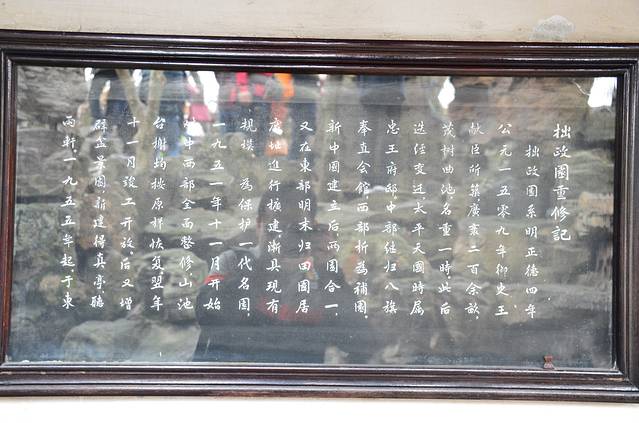 拙政園重修記
拙政園系明正德四年
公元一五零九年御史王
献臣所築廣袤二百余畝
茂树曲池名重一時此后
迭经变迁太平天國時属
忠王府邸中部继归八旗
奉直会館西部拆為補園
新中國建立后两園合一
又在東部明末归田園居
廢址進行擴建渐具現有
規模為保护一代名園
一九五一年十一月开始
中西部全面整修山池
台榭均按原样恢复翌年
十一月竣工开放后又增
辟盆景園新建得真亭聽
雨軒一九五五年起于東